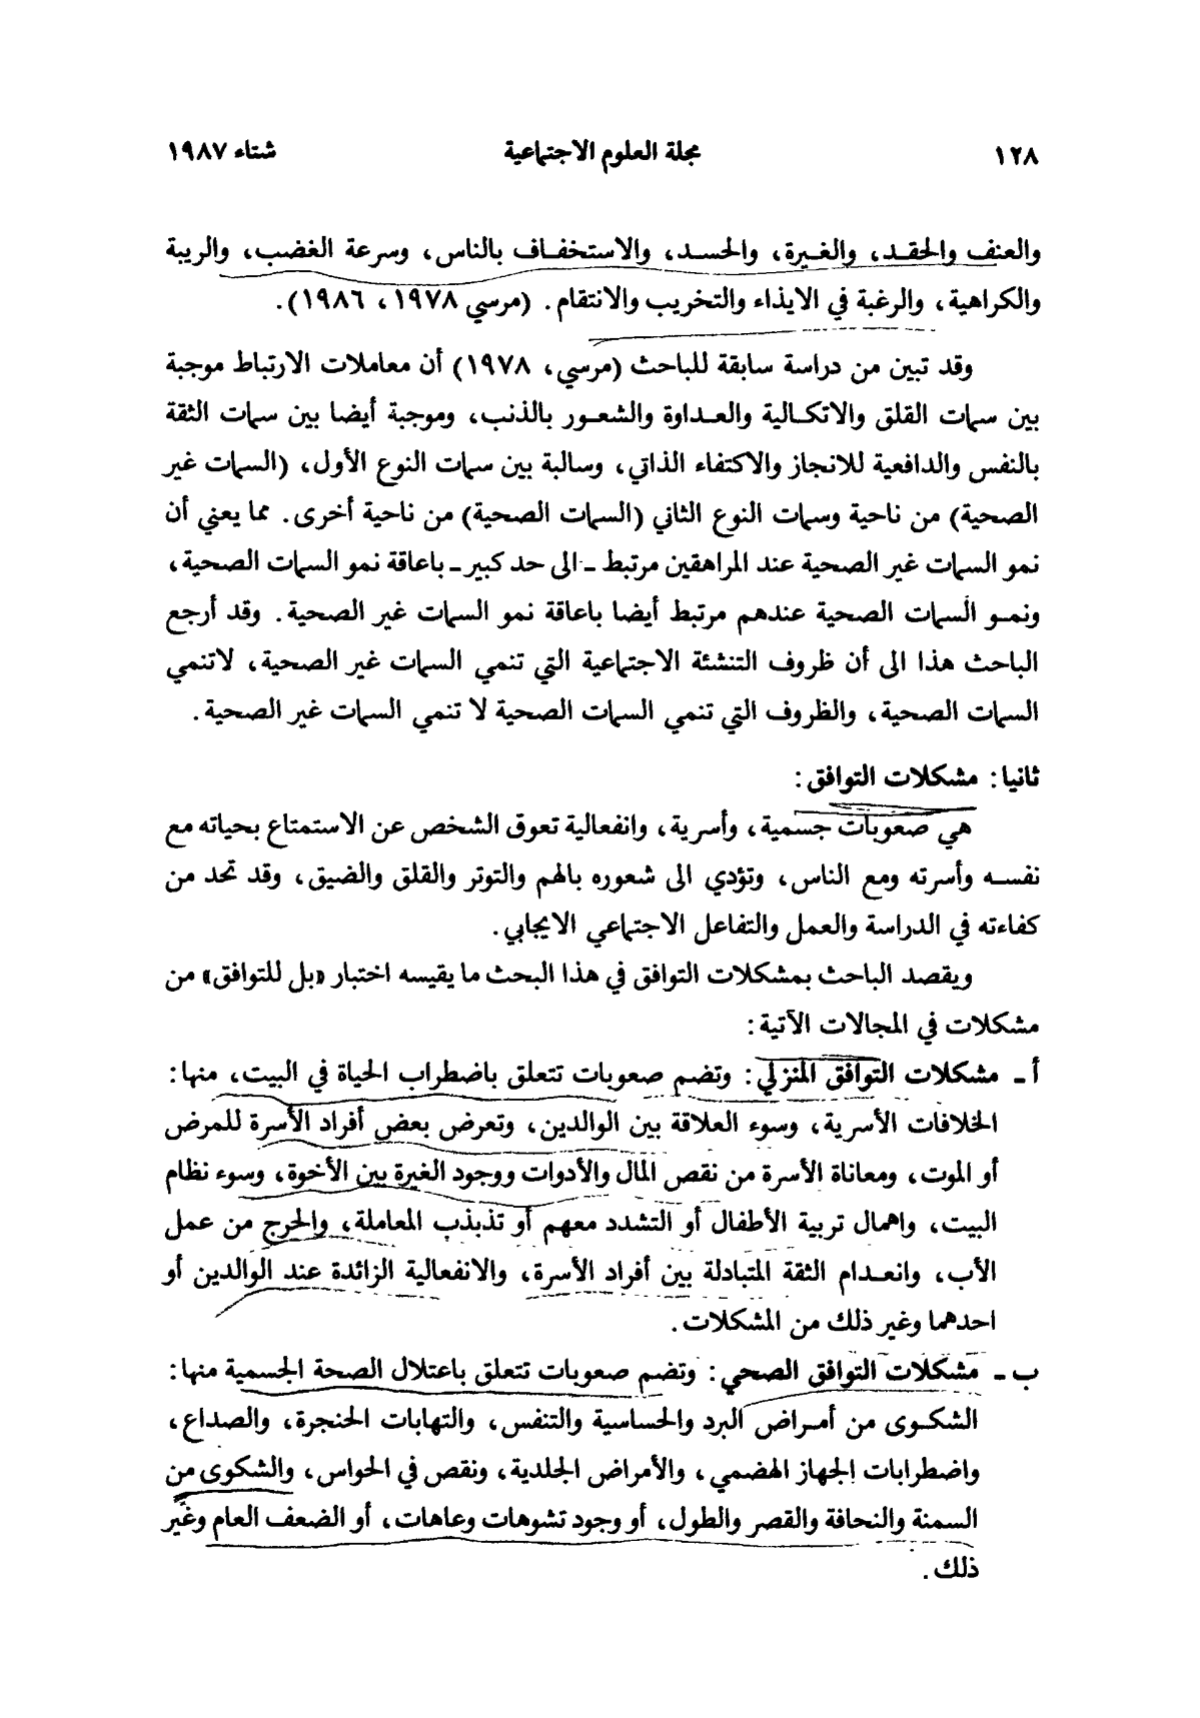 ١٢٨ مجلة العلوم الاجتماعية شتاء ١٩٨٧
والعنف والحقد، والغيرة، والحسد، والاستخفاف بالناس، وسرعة الغضب، والريبة
والكراهية، والرغبة في الايذاء والتخريب والانتقام. (مرسي ١٩٧٨، ١٩٨٦).
وقد تبين من دراسة سابقة للباحث (مرسي، ١٩٧٨) أن معاملات الارتباط موجبة
بين سمات القلق والاتكالية والعداوة والشعور بالذنب، وموجبة أيضا بين سمات الثقة
بالنفس والدافعية للانجاز والاكتفاء الذاتي، وسالبة بين سمات النوع الأول، (السمات غير
الصحية) من ناحية وسمات النوع الثاني (السمات الصحية) من ناحية أخرى. مما يعني أن
نمو السمات غير الصحية عند المراهقين مرتبط - الى حد كبير - باعاقة نمو السمات الصحية،
ونمو السمات الصحية عندهم مرتبط أيضا باعاقة نمو السمات غير الصحية. وقد أرجع
الباحث هذا الى أن ظروف التنشئة الاجتماعية التي تنمي السمات غير الصحية، لاتنمي
السمات الصحية، والظروف التي تنمي السمات الصحية لا تنمي السمات غير الصحية.
ثانيا: مشكلات التوافق:
هي صعوبات جسمية، وأسرية، وانفعالية تعوق الشخص عن الاستمتاع بحياته مع
نفسه وأسرته ومع الناس، وتؤدي الى شعوره بالهم والتوتر والقلق والضيق، وقد تحد من
كفاءته في الدراسة والعمل والتفاعل الاجتماعي الايجابي.
ويقصد الباحث بمشكلات التوافق في هذا البحث ما يقيسه اختبار «بل للتوافق» من
مشكلات في المجالات الآتية:
أ - مشكلات التوافق المنزلي: وتضم صعوبات تتعلق باضطراب الحياة في البيت، منها:
الخلافات الأسرية، وسوء العلاقة بين الوالدين، وتعرض بعض أفراد الأسرة للمرض
أو الموت، ومعاناة الأسرة من نقص المال والأدوات ووجود الغيرة بين الأخوة، وسوء نظام
البيت، واهمال تربية الأطفال أو التشدد معهم أو تذبذب المعاملة، والحرج من عمل
الأب، وانعدام الثقة المتبادلة بين أفراد الأسرة، والانفعالية الزائدة عند الوالدين أو
احدهما وغير ذلك من المشكلات.
ب - مشكلات التوافق الصحي: وتضم صعوبات تتعلق باعتلال الصحة الجسمية منها:
الشكوى من أمراض البرد والحساسية والتنفس، والتهابات الحنجرة، والصداع،
واضطرابات الجهاز الهضمي، والأمراض الجلدية، ونقص في الحواس، والشكوى من
السمنة والنحافة والقصر والطول، أو وجود تشوهات وعاهات، أو الضعف العام وغير
ذلك.